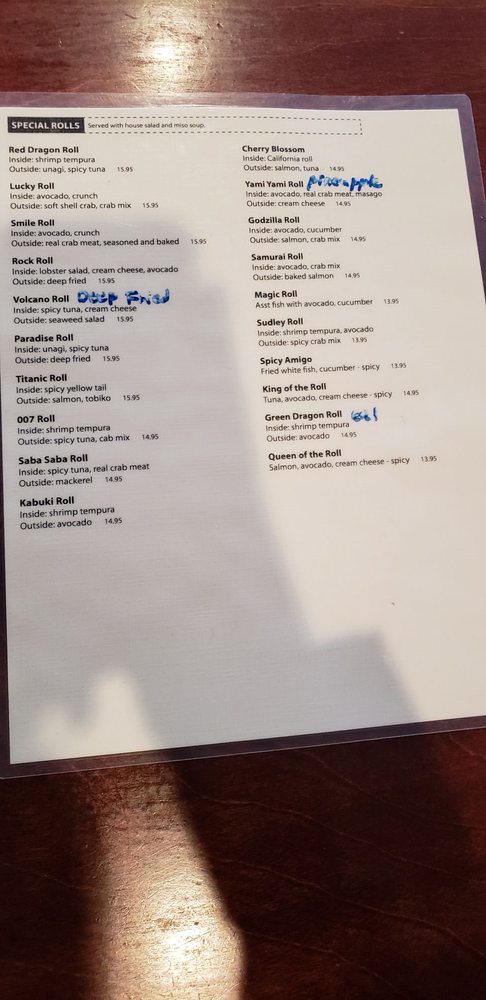 SPECIAL ROLLS Served with house salad and miso soup.
Red Dragon Roll
Inside: shrimp tempura
Outside: unagi, spicy tuna 15.95
Lucky Roll
Inside: avocado, crunch
Outside: soft shell crab, crab mix 15.95
Smile Roll
Inside: avocado, crunch
Outside: real crab meat, seasoned and baked 15.95
Rock Roll
Inside: lobster salad, cream cheese, avocado
Outside: deep fried 15.95
Volcano Roll Deep Fried
Inside: spicy tuna, cream cheese
Outside: seaweed salad 15.95
Paradise Roll
Inside: unagi, spicy tuna
Outside: deep fried 15.95
Titanic Roll
Inside: spicy yellow tail
Outside: salmon, tobiko 15.95
007 Roll
Inside: shrimp tempura
Outside: spicy tuna, cab mix 14.95
Saba Saba Roll
Inside: spicy tuna, real crab meat
Outside: mackerel 14.95
Kabuki Roll
Inside: shrimp tempura
Outside: avocado 14.95
Cherry Blossom
Inside: California roll
Outside: salmon, tuna 14.95
Yami Yami Roll pineapple
Inside: avocado, real crab meat, masago
Outside: cream cheese 14.95
Godzilla Roll
Inside: avocado, cucumber
Outside: salmon, crab mix 14.95
Samurai Roll
Inside: avocado, crab mix
Outside: baked salmon 14.95
Magic Roll
Asst fish with avocado, cucumber 13.95
Sudley Roll
Inside: shrimp tempura, avocado
Outside: spicy crab mix 13.95
Spicy Amigo
Fried white fish, cucumber - spicy 13.95
King of the Roll
Tuna, avocado, cream cheese - spicy 14.95
Green Dragon Roll
Inside: shrimp tempura
Outside: avocado 14.95
Queen of the Roll
Salmon, avocado, cream cheese - spicy 13.95